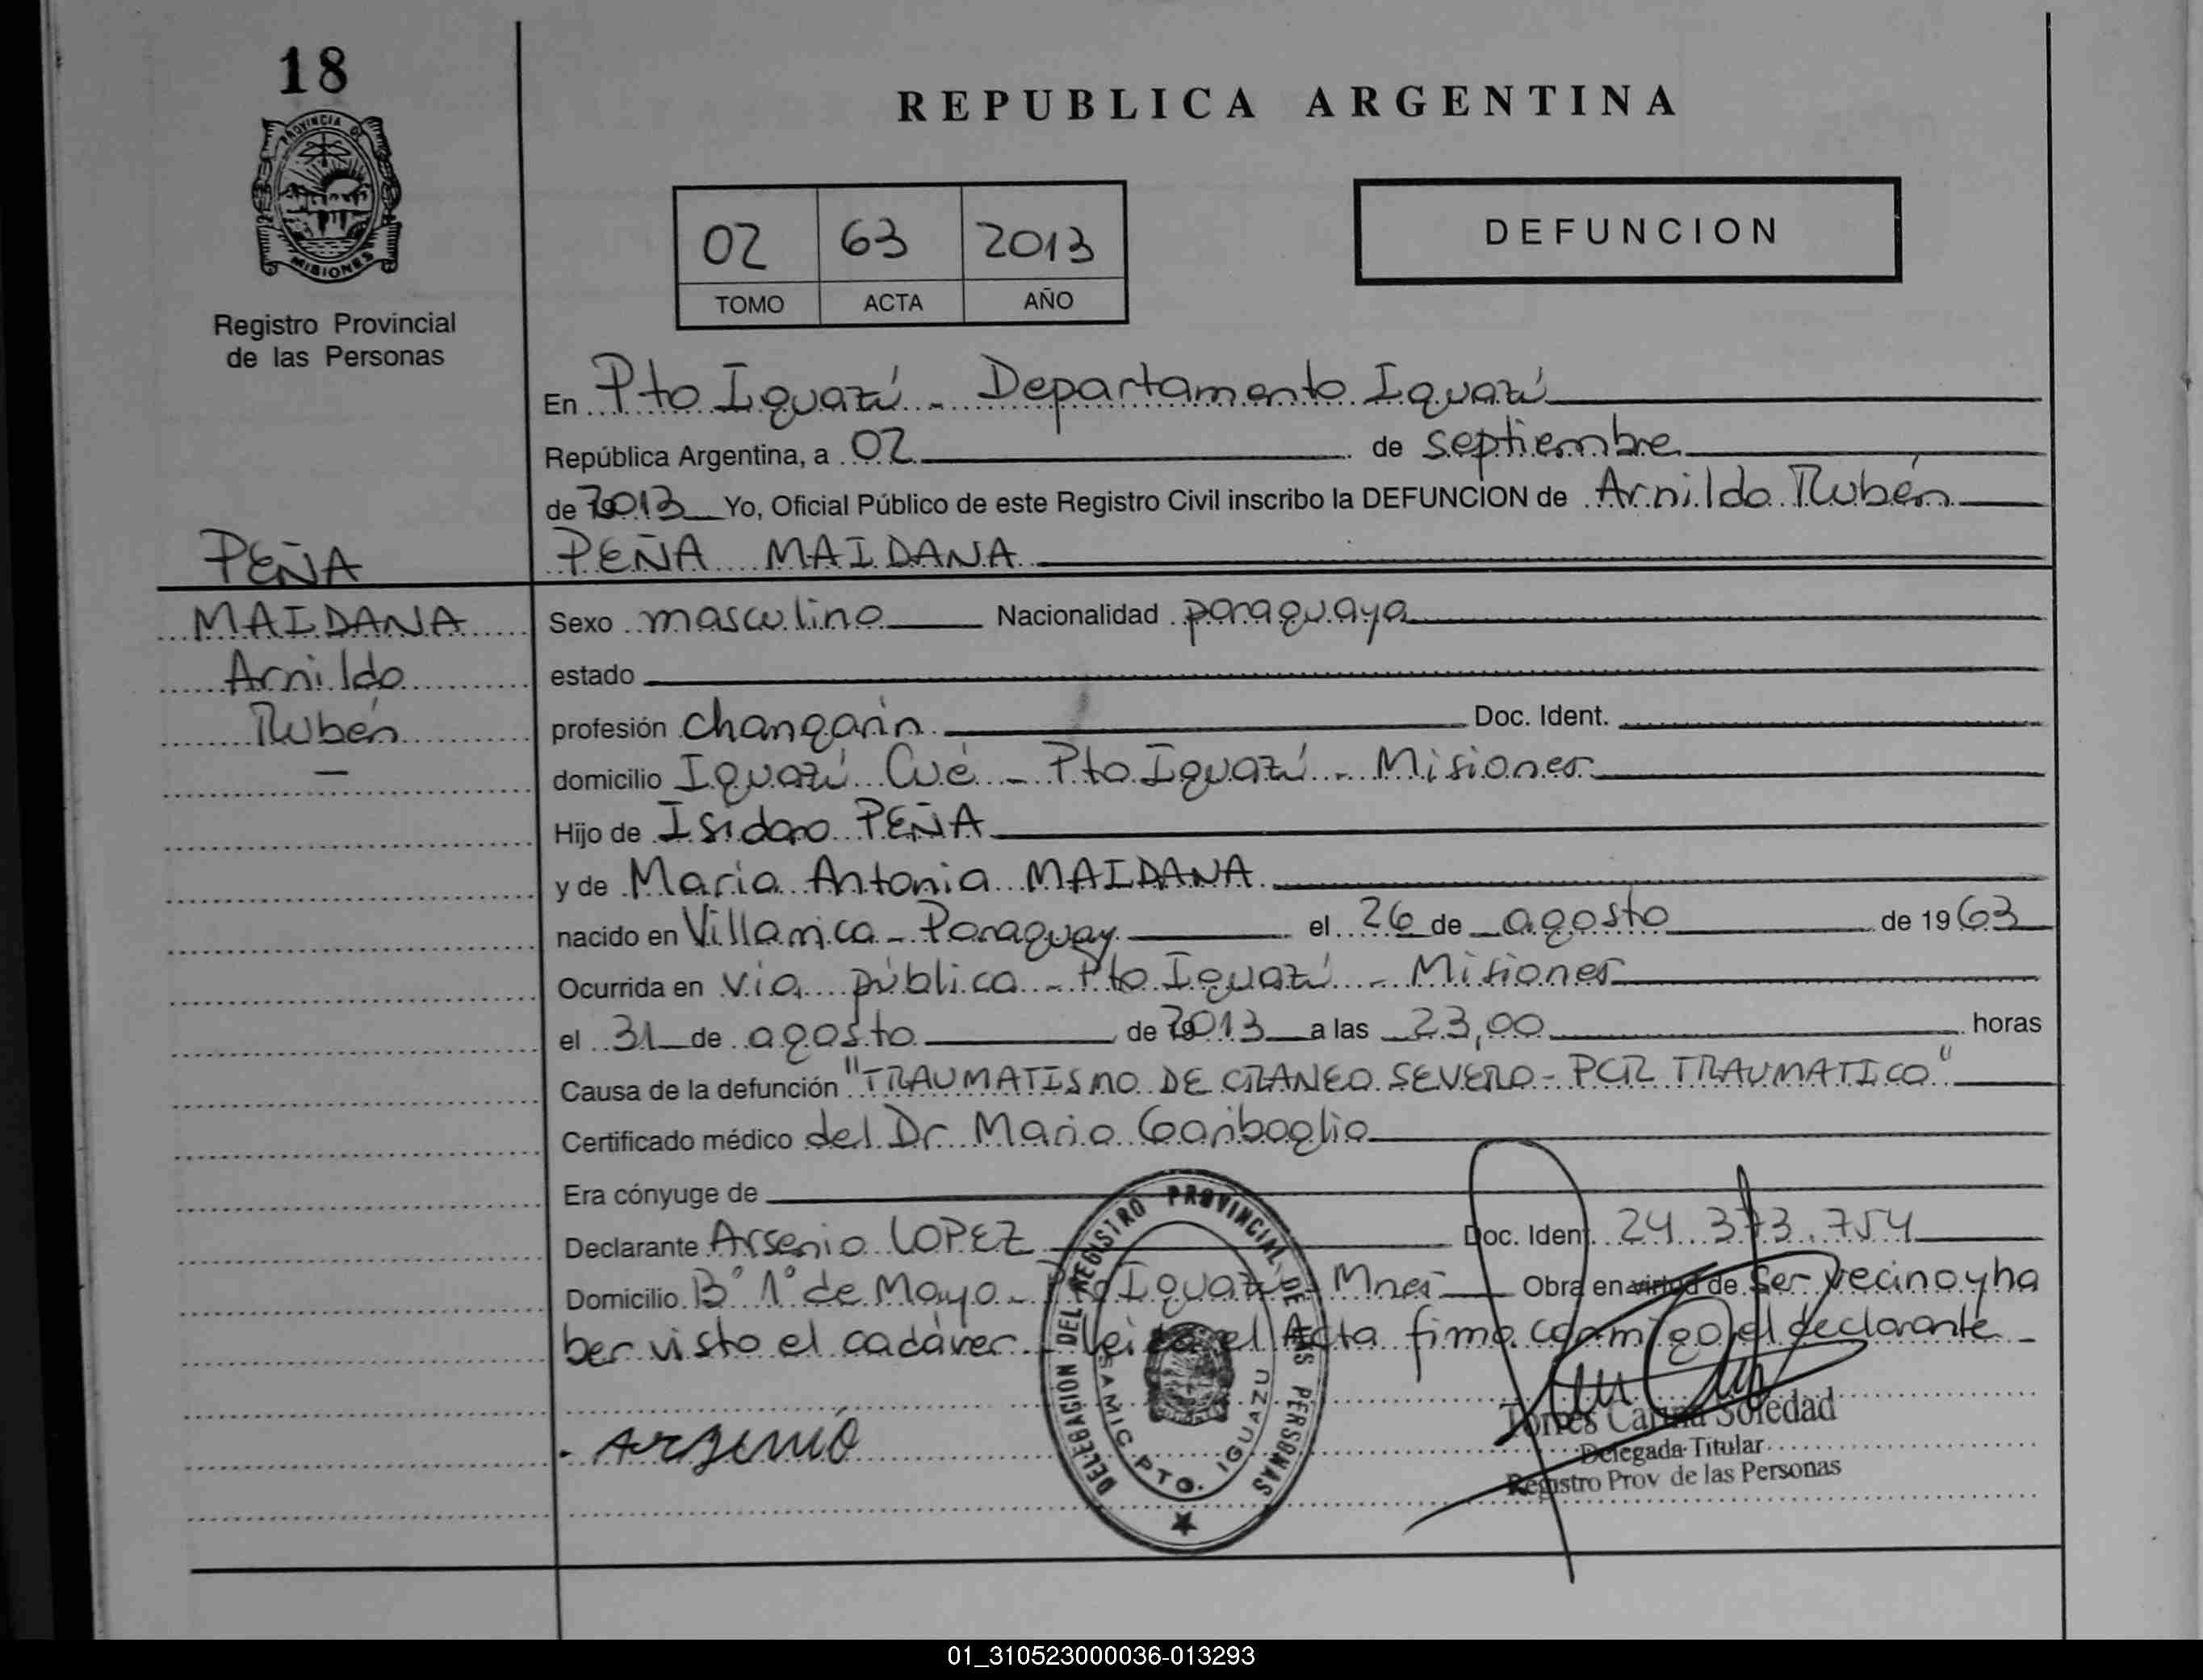 18
PROVINCIA DE
MISIONES
Registro Provincial
de las Personas
REPUBLICA ARGENTINA
02 63 2013
TOMO ACTA AÑO
DEFUNCION
En Pto Iguazú - Departamento Iguazú
República Argentina, a 02 de septiembre
de 2013 Yo, Oficial Público de este Registro Civil inscribo la DEFUNCION de Arnildo Rubén
PEÑA MAIDANA
PEÑA
MAIDANA
Arnildo
Rubén
—
Sexo masculino Nacionalidad paraguaya
estado
profesión changarín Doc. Ident.
domicilio Iguazú Cué - Pto Iguazú - Misiones
Hijo de Isidoro PEÑA
y de María Antonia MAIDANA
nacido en Villarrica - Paraguay el 26 de agosto de 1963
Ocurrida en vía pública - Pto Iguazú - Misiones
el 31 de agosto de 2013 a las 23,00 horas
Causa de la defunción "TRAUMATISMO DE CRANEO SEVERO - PCR TRAUMATICO"
Certificado médico del Dr. Mario Gariboglio
Era cónyuge de
Declarante Arsenio LOPEZ Doc. Ident. 24.373.754
Domicilio B° 1° de Mayo - Pto Iguazú Mnes Obra en virtud de ser vecino y ha
ber visto el cadáver - Leída el Acta firma conmigo el declarante -
Argenió
DELEGACION DEL REGISTRO PROVINCIAL DE LAS PERSONAS
SAMIC PTO. IGUAZU
Torres Carina Soledad
Delegada Titular
Registro Prov de las Personas
01_310523000036-013293